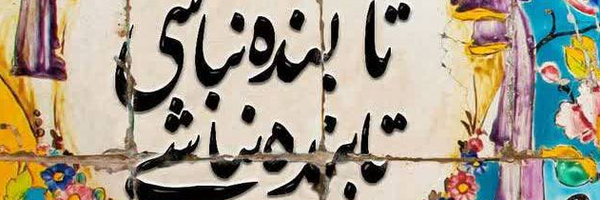 تا بنده نباشی
تا بنده نباشی